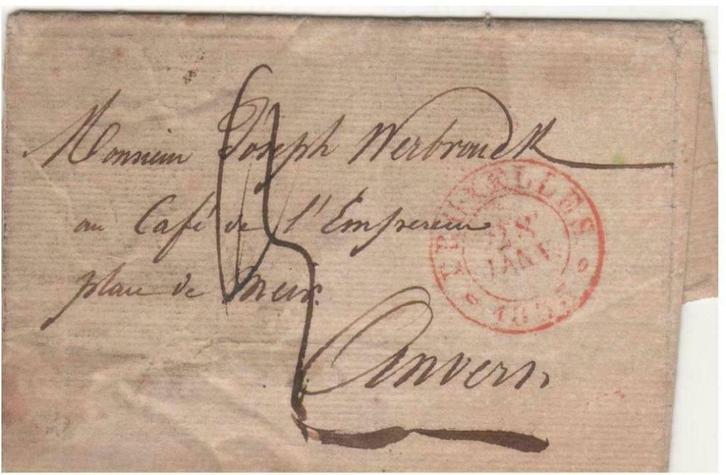 Monsieur Joseph Werbrouck
au Café de l'Empereur
place de Meir.
Anvers
BRUXELLES
28
JANV